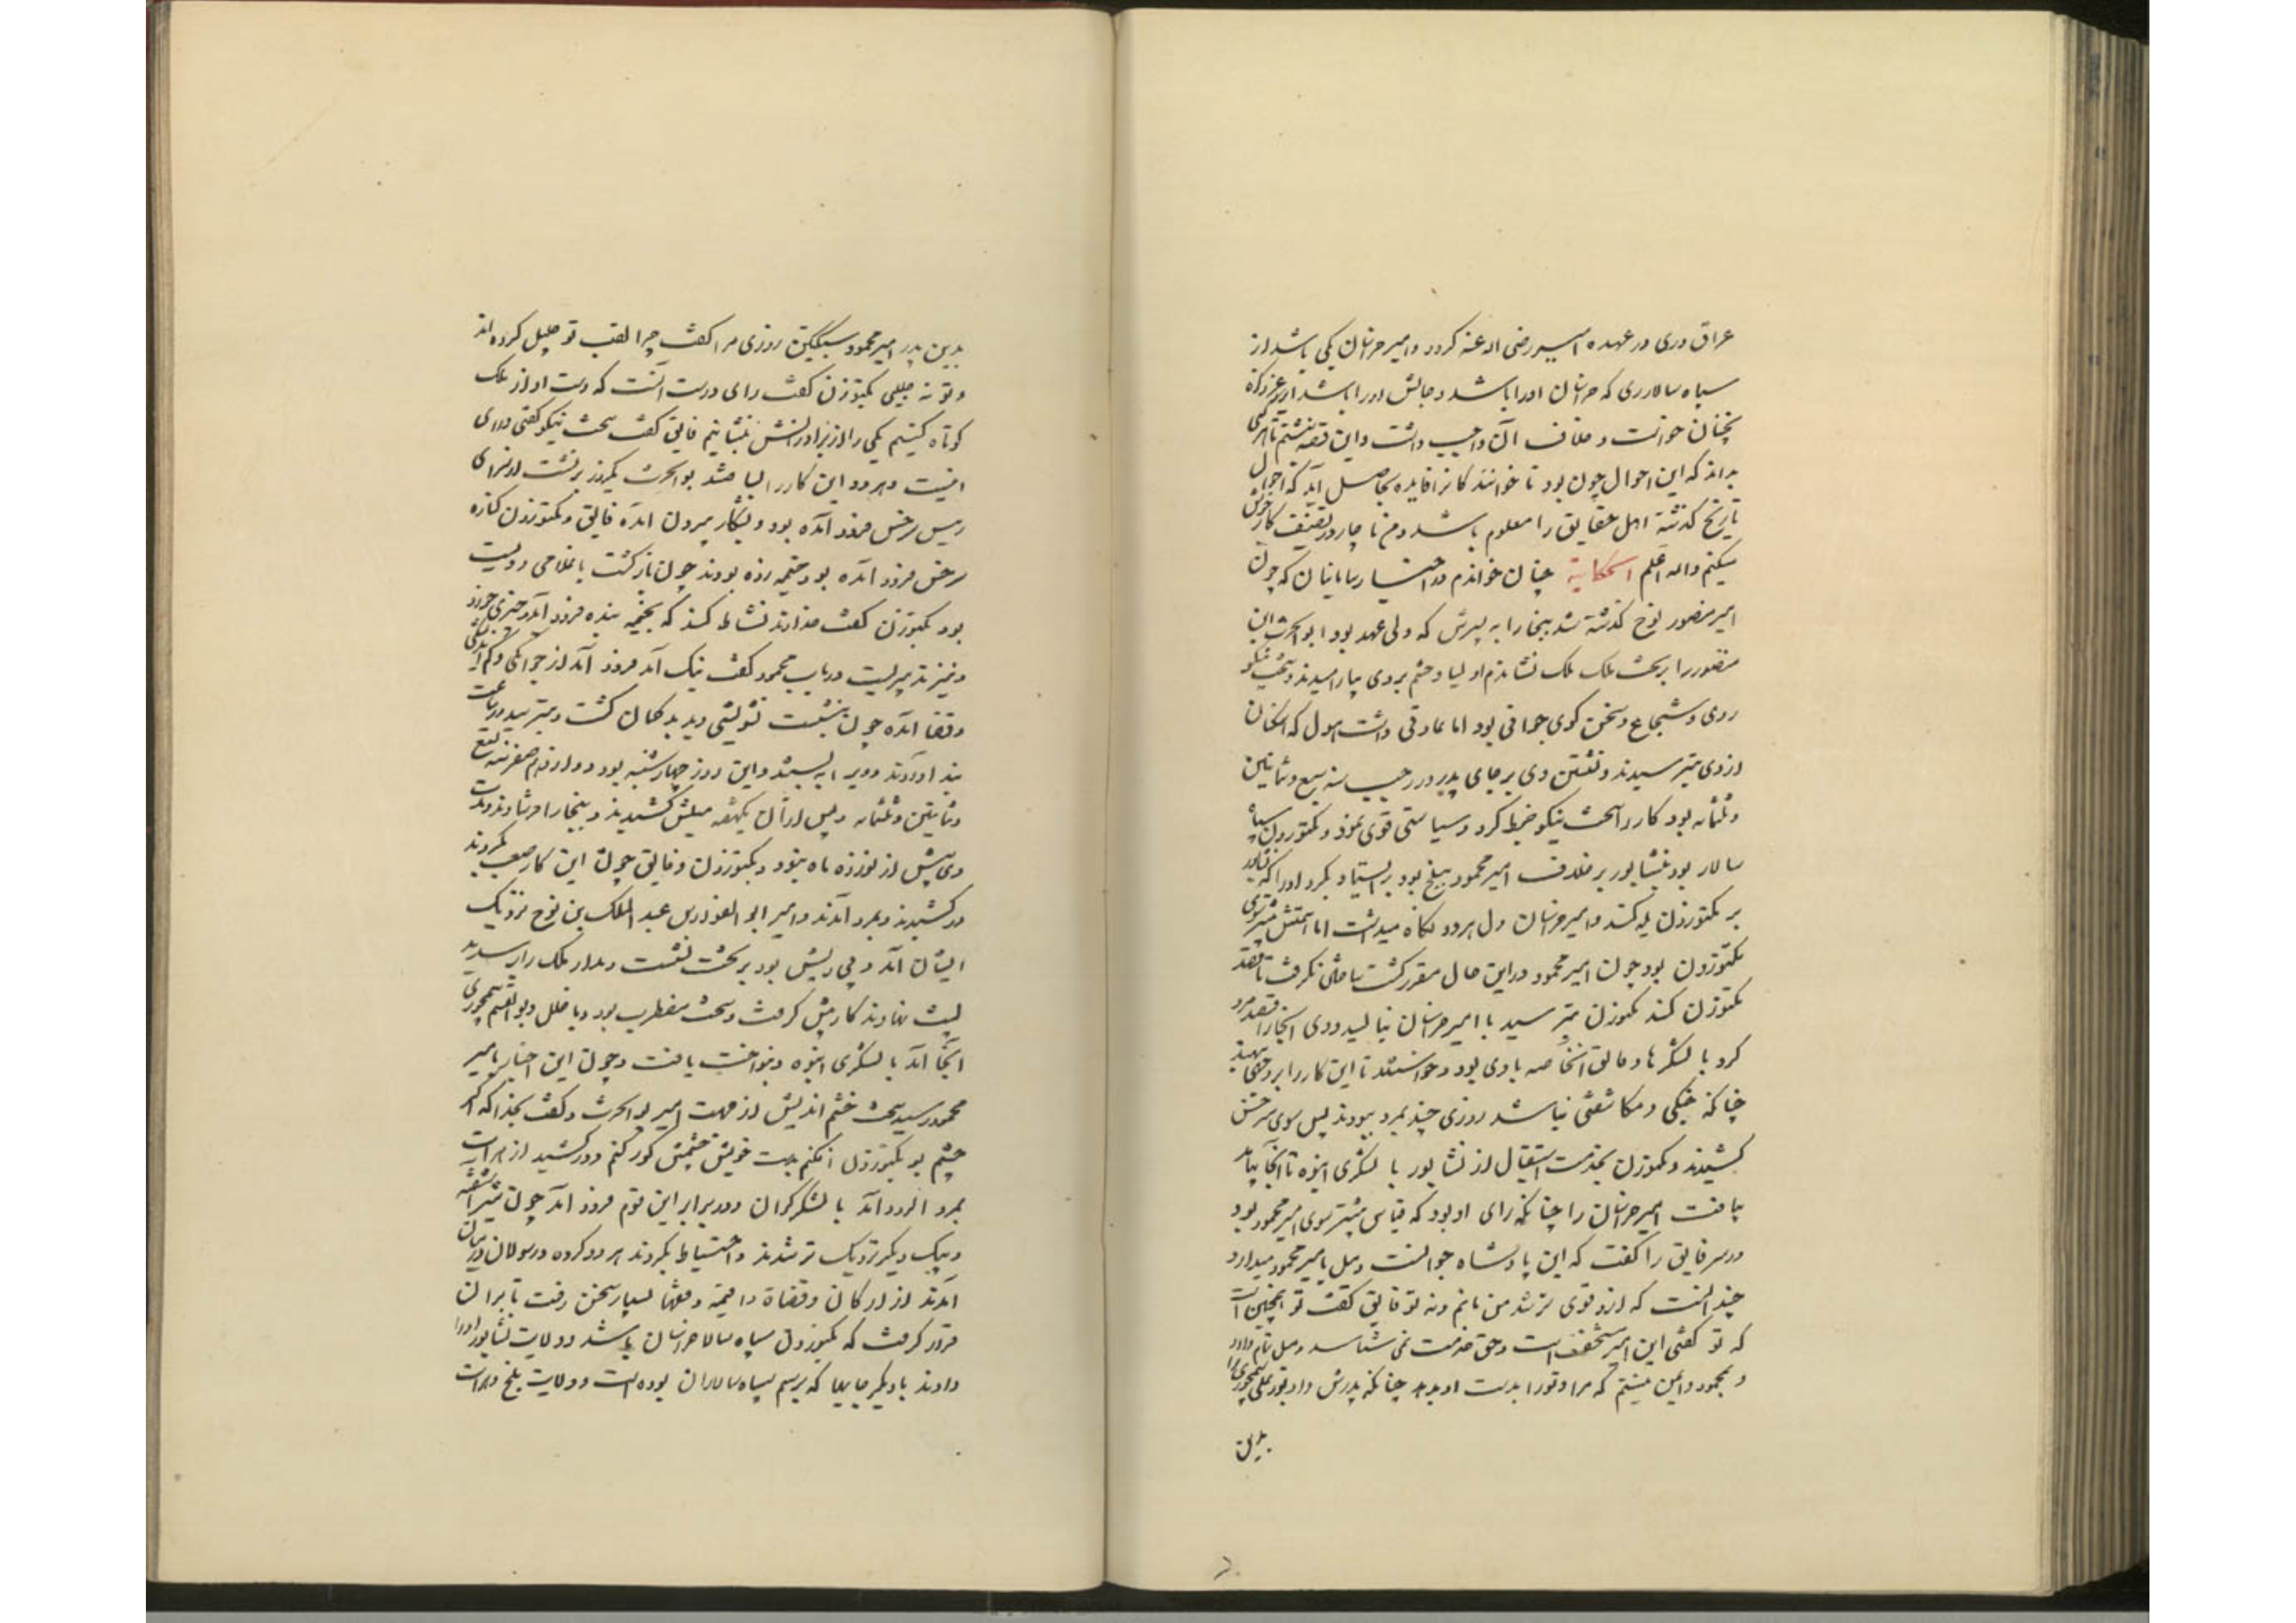 عراق وری در عهده امیر رضی الله عنه کرد و امیر خراسان یکی باشد از
سپاه سالاری که خراسان او را باشد و جالش او را باشد
همچنان خواست و خلاف آن واجب داشت و این قصه نبشتم تا هر کسی
بداند که این احوال چون بود تا خوانندکانرا فایده بحاصل آید که احوال
تاریخ کذشته اهل حقایق را معلوم باشد و من ناچار در تصنیف کار خویش
میکنم والله اعلم الحکایة چنان خواندم در اخبار سامانیان که چون
امیر منصور نوح کذشته شد ببخارا به پسرش که ولی عهد بود ابو الحرث ابن
منصور را بر تخت ملک ملک نشاندم اولیا و حشم بر وی بیارامیدند و سخت نیکو
روی و شجاع و سخن کوی جوانی بود اما عادتی داشت هول که همکان
از وی بترسیدند و نشستن وی بر جای پدر در رجب سنه سبع و ثمانین
و ثلثمائه بود کارد را سخت نیکو ضبط کرد و سیاستی قوی نمود و بکتوزون سپاه
سالار بود بنشابور بر خلاف امیر محمود ببلخ بود بر ایستاد بکرد او را که نشابور
بر بکتوزون یله کند و امیر خراسان دل هر دو نکاه میداشت اما میلش بیشتر سوی
بکتوزون بود چون امیر محمود در این حال مقرر کشت ساختن کرفت تا قصد
بکتوزن کند بکتوزن بترسید با امیر خراسان بنالید و وی از بخارا قصد مرو
کرد با لشکرها و فایق الخاصه با وی بود و خواستند تا این کار را بر وجهی بنهند
چنانکه جنکی و مکاشفتی نباشد روزی چند بمرو ببودند پس سوی سرخس
کشیدند و بکتوزن بخدمت استقبال از نشابور با لشکری انبوه تا آنجا بیامد
بیافت امیر خراسان را چنانکه رای او بود که قیاس بیشتر سوی امیر محمود بود
در سر فایق را کفت که این پادشاه جوانست و میل با امیر محمود میدارد
چندانست که او قوی تر شد من نمانم و نه تو فایق کفت تو همچنین است
که تو کفتی این امیر مستخف است و حق خدمت نمی شناسد و میل تمام دارد
و بمحمود و ایمن نیستم که مرا و تو را بدست او بدهد چنانکه پدرش داد بو علی سیمجوری را
بدین
بدین پدر امیر محمود سبکتکین روزی مرا کفت چرا لقب تو جلیل کرده اند
و تو نه جلیلی بکتوزن کفت رای درست آنست که دست او از ملک
کوتاه کنیم یکی را از برادرانش بنشانیم فایق کفت سخت نیکو کفتی و رای
اینست و هر دو این کار را بساختند بو الحرث یکروز بر نشست از سرای
رییس سرخس فرود آمده بود و بشکار بیرون آمده فایق و بکتوزون کناره
سرخس فرود آمده بود و خیمه زده بودند چون بازکشت با غلامی دویست
بود بکتوزن کفت خداوند نشاط کند که بخیمه بنده فرود آید و چیزی خورد
و نیز تدبیریست در باب محمود کفت نیک آمد فرود آمد از جوانی و کم اندیشکی
و قضا آمده چون بنشست تشویشی دید بد کمان کشت و بترسید در ساعت
بند آوردند و ویرا ببستند و این روز چهارشنبه بود دوازدهم صفر سنه تسع
و ثمانین و ثلثمائه و پس از آن بیکهفته میلش کشیدند و ببخارا فرستادند و مدت
وی بیش از نوزده ماه نبود و بکتوزون و فایق چون این کار صعب بکردند
در کشیدند و بمرو آمدند و امیر ابو الفوارس عبد الملک بن نوح نزدیک
ایشان آمد و بی ریش بود بر تخت نشست و مدار ملک را بر سدید
لیث نهادند کار پیش کرفت و سخت مضطرب بود و با خلل و بو القسم سیمجوری
آنجا آمد با لشکری انبوه و بنواخت یافت و چون این اخبار بامیر
محمود رسید سخت خشم اندیش از جهت امیر بو الحرث و کفت بخدا که اگر
چشم بر بکتوزون افکنم بدست خویش چشمش کور کنم و در کشید از هرات
بمرو الرود آمد با لشکر کران و در برابر این قوم فرود آمد چون شیر آشفته
و بیک دیکر نزدیک تر شدند و احتیاط بکردند هر دو کروه و رسولان در میان
آمدند از ارکان و قضاة و ائمه و فقها بسیار سخن رفت تا بر آن
قرار کرفت که بکتوزون سپاه سالار خراسان باشد و ولایت نشابور او را
دادند با دیکر جایها که برسم سپاه سالاران بوده است و ولایت بلخ و هرات